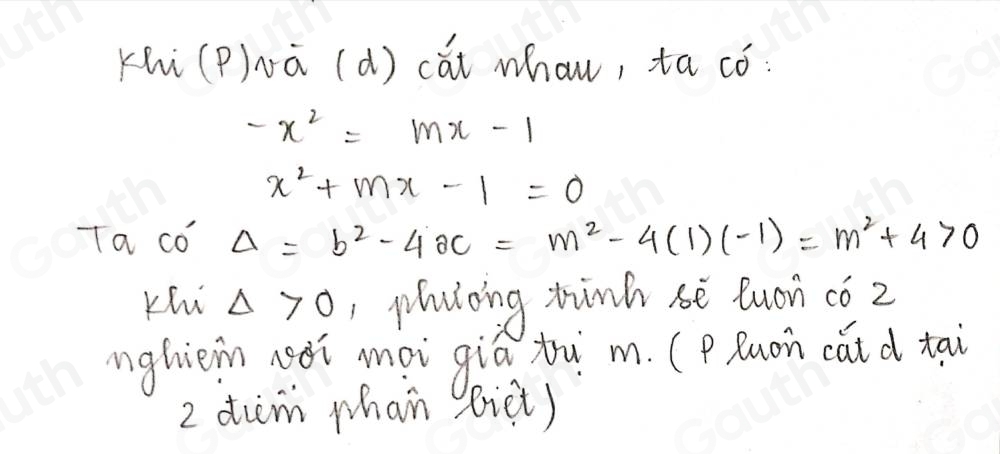 Khi (P) và (d) cắt nhau, ta có:
-x² = mx - 1
x² + mx - 1 = 0
Ta có Δ = b² - 4ac = m² - 4(1)(-1) = m² + 4 > 0
Khi Δ > 0, phương trình sẽ luôn có 2
nghiệm với mọi giá trị m. (P luôn cắt d tại
2 điểm phân biệt)